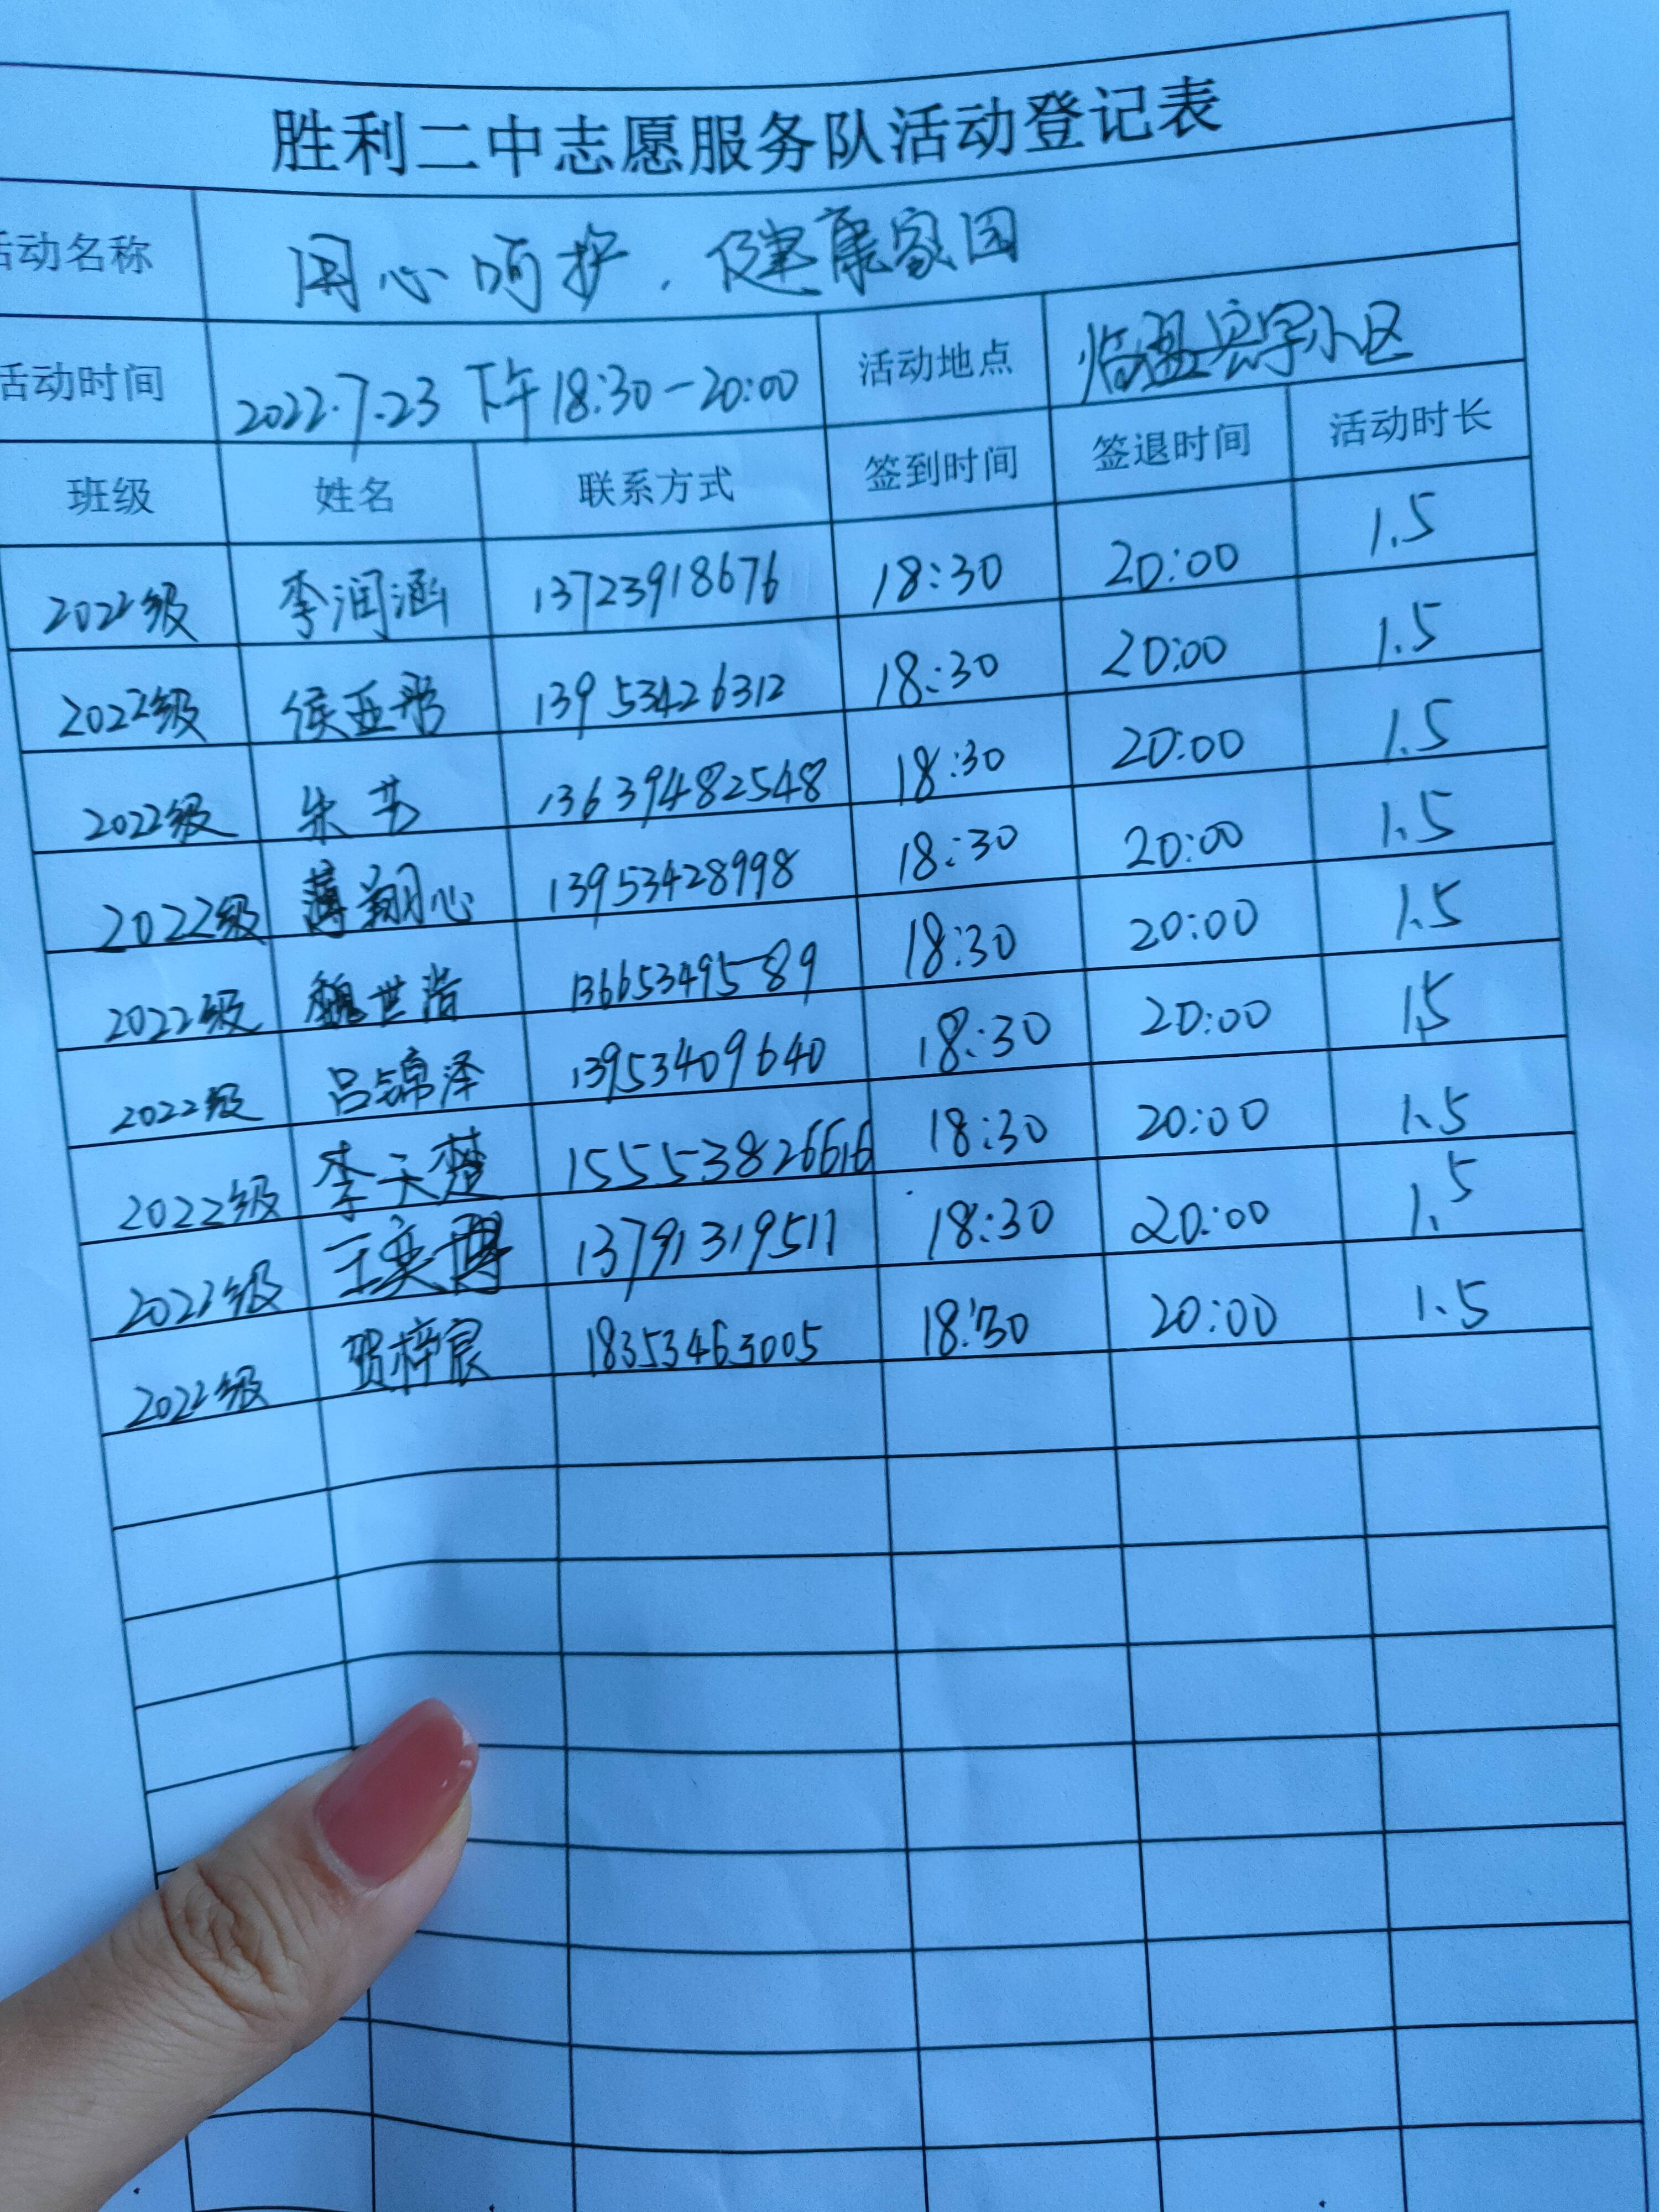 胜利二中志愿服务队活动登记表
活动名称 用心呵护.健康家园
活动时间 2022.7.23 下午18:30-20:00 活动地点 临盘宏宇小区
班级 姓名 联系方式 签到时间 签退时间 活动时长
2022级 李润涵 13723918676 18:30 20:00 1.5
2022级 侯亚彤 13953426312 18:30 20:00 1.5
2022级 朱艺 13639482548 18:30 20:00 1.5
2022级 薄翔心 13953428998 18:30 20:00 1.5
2022级 魏世浩 13665349589 18:30 20:00 1.5
2022级 吕锦泽 13953409640 18:30 20:00 1.5
2022级 李天楚 15553826616 18:30 20:00 1.5
2022级 王奕博 13791319511 18:30 20:00 1.5
2022级 贺梓宸 18353463005 18:30 20:00 1.5